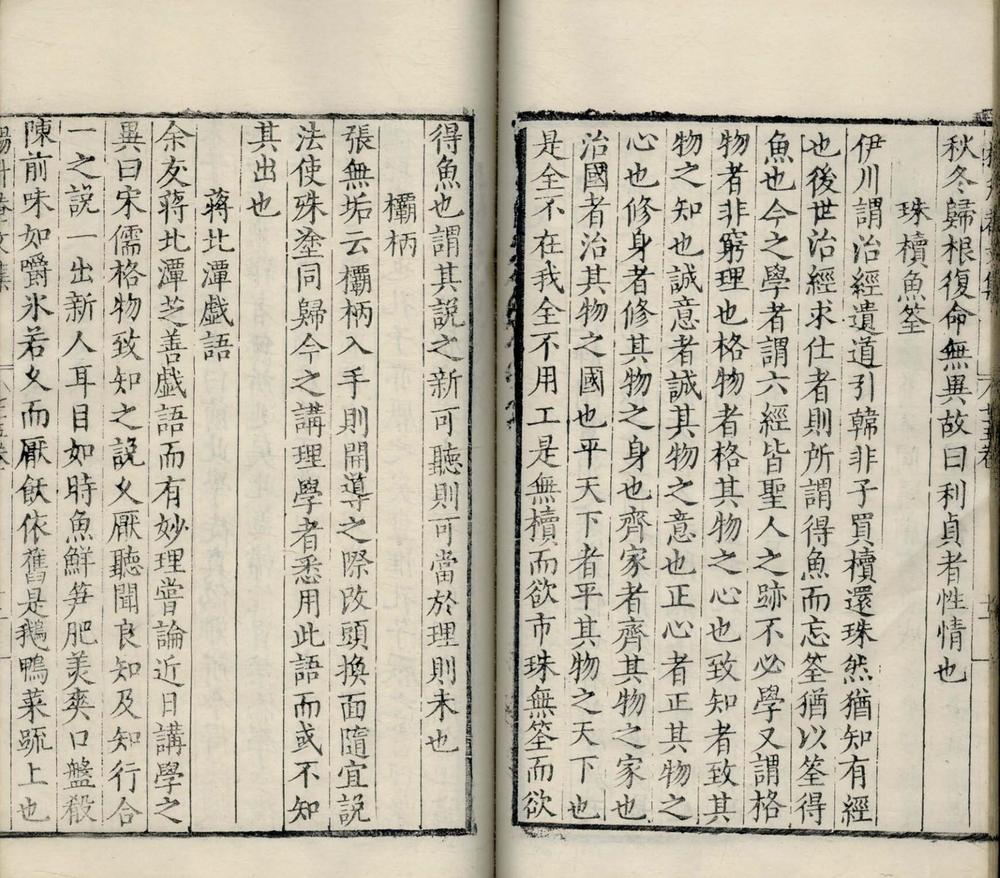 秋冬歸根復命無異故曰利貞者性情也
珠櫝魚筌
伊川謂治經遺道引韓非子買櫝還珠然猶知有經
也後世治經求仕者則所謂得魚而忘筌猶以筌得
魚也今之學者謂六經皆聖人之跡不必學又謂格
物者非窮理也格物者格其物之心也致知者致其
物之知也誠意者誠其物之意也正心者正其物之
心也修身者修其物之身也齊家者齊其物之家也
治國者治其物之國也平天下者平其物之天下也
是全不在我全不用工是無櫝而欲市珠無筌而欲
得魚也謂其說之新可聽則可當於理則未也
欛柄
張無垢云欛柄入手則開導之際改頭換面隨宜說
法使殊塗同歸今之講理學者悉用此語而或不知
其出也
蔣北潭戲語
余友蔣北潭芝善戲語而有妙理嘗論近日講學之
異曰宋儒格物致知之說久厭聽聞良知及知行合
一之說一出新人耳目如時魚鮮笋肥美爽口盤殽
陳前味如嚼氷若久而厭飫依舊是鵝鴨菜蔬上也